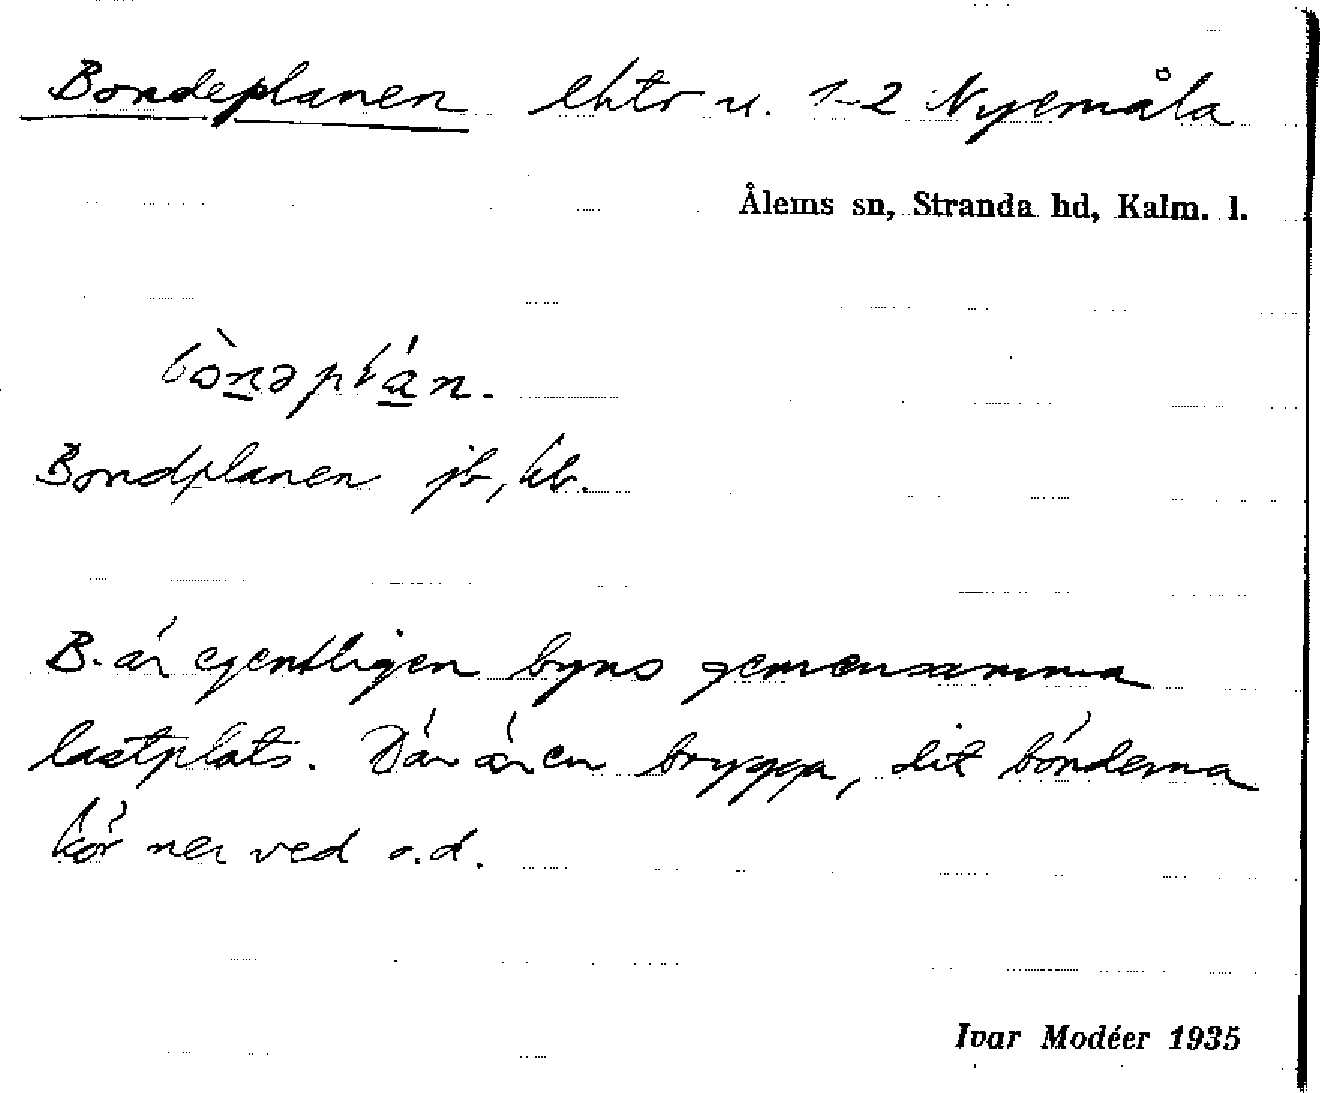 Bondeplanen lhtr u. 1-2 Nyemåla
Ålems sn, Stranda hd, Kalm. l.
bònəplán.
Bondplanen jb, kb.
B. är egentligen byns gemensamma
lastplats. Där är en brygga, dit bönderna
kör ner ved o.d.
Ivar Modéer 1935